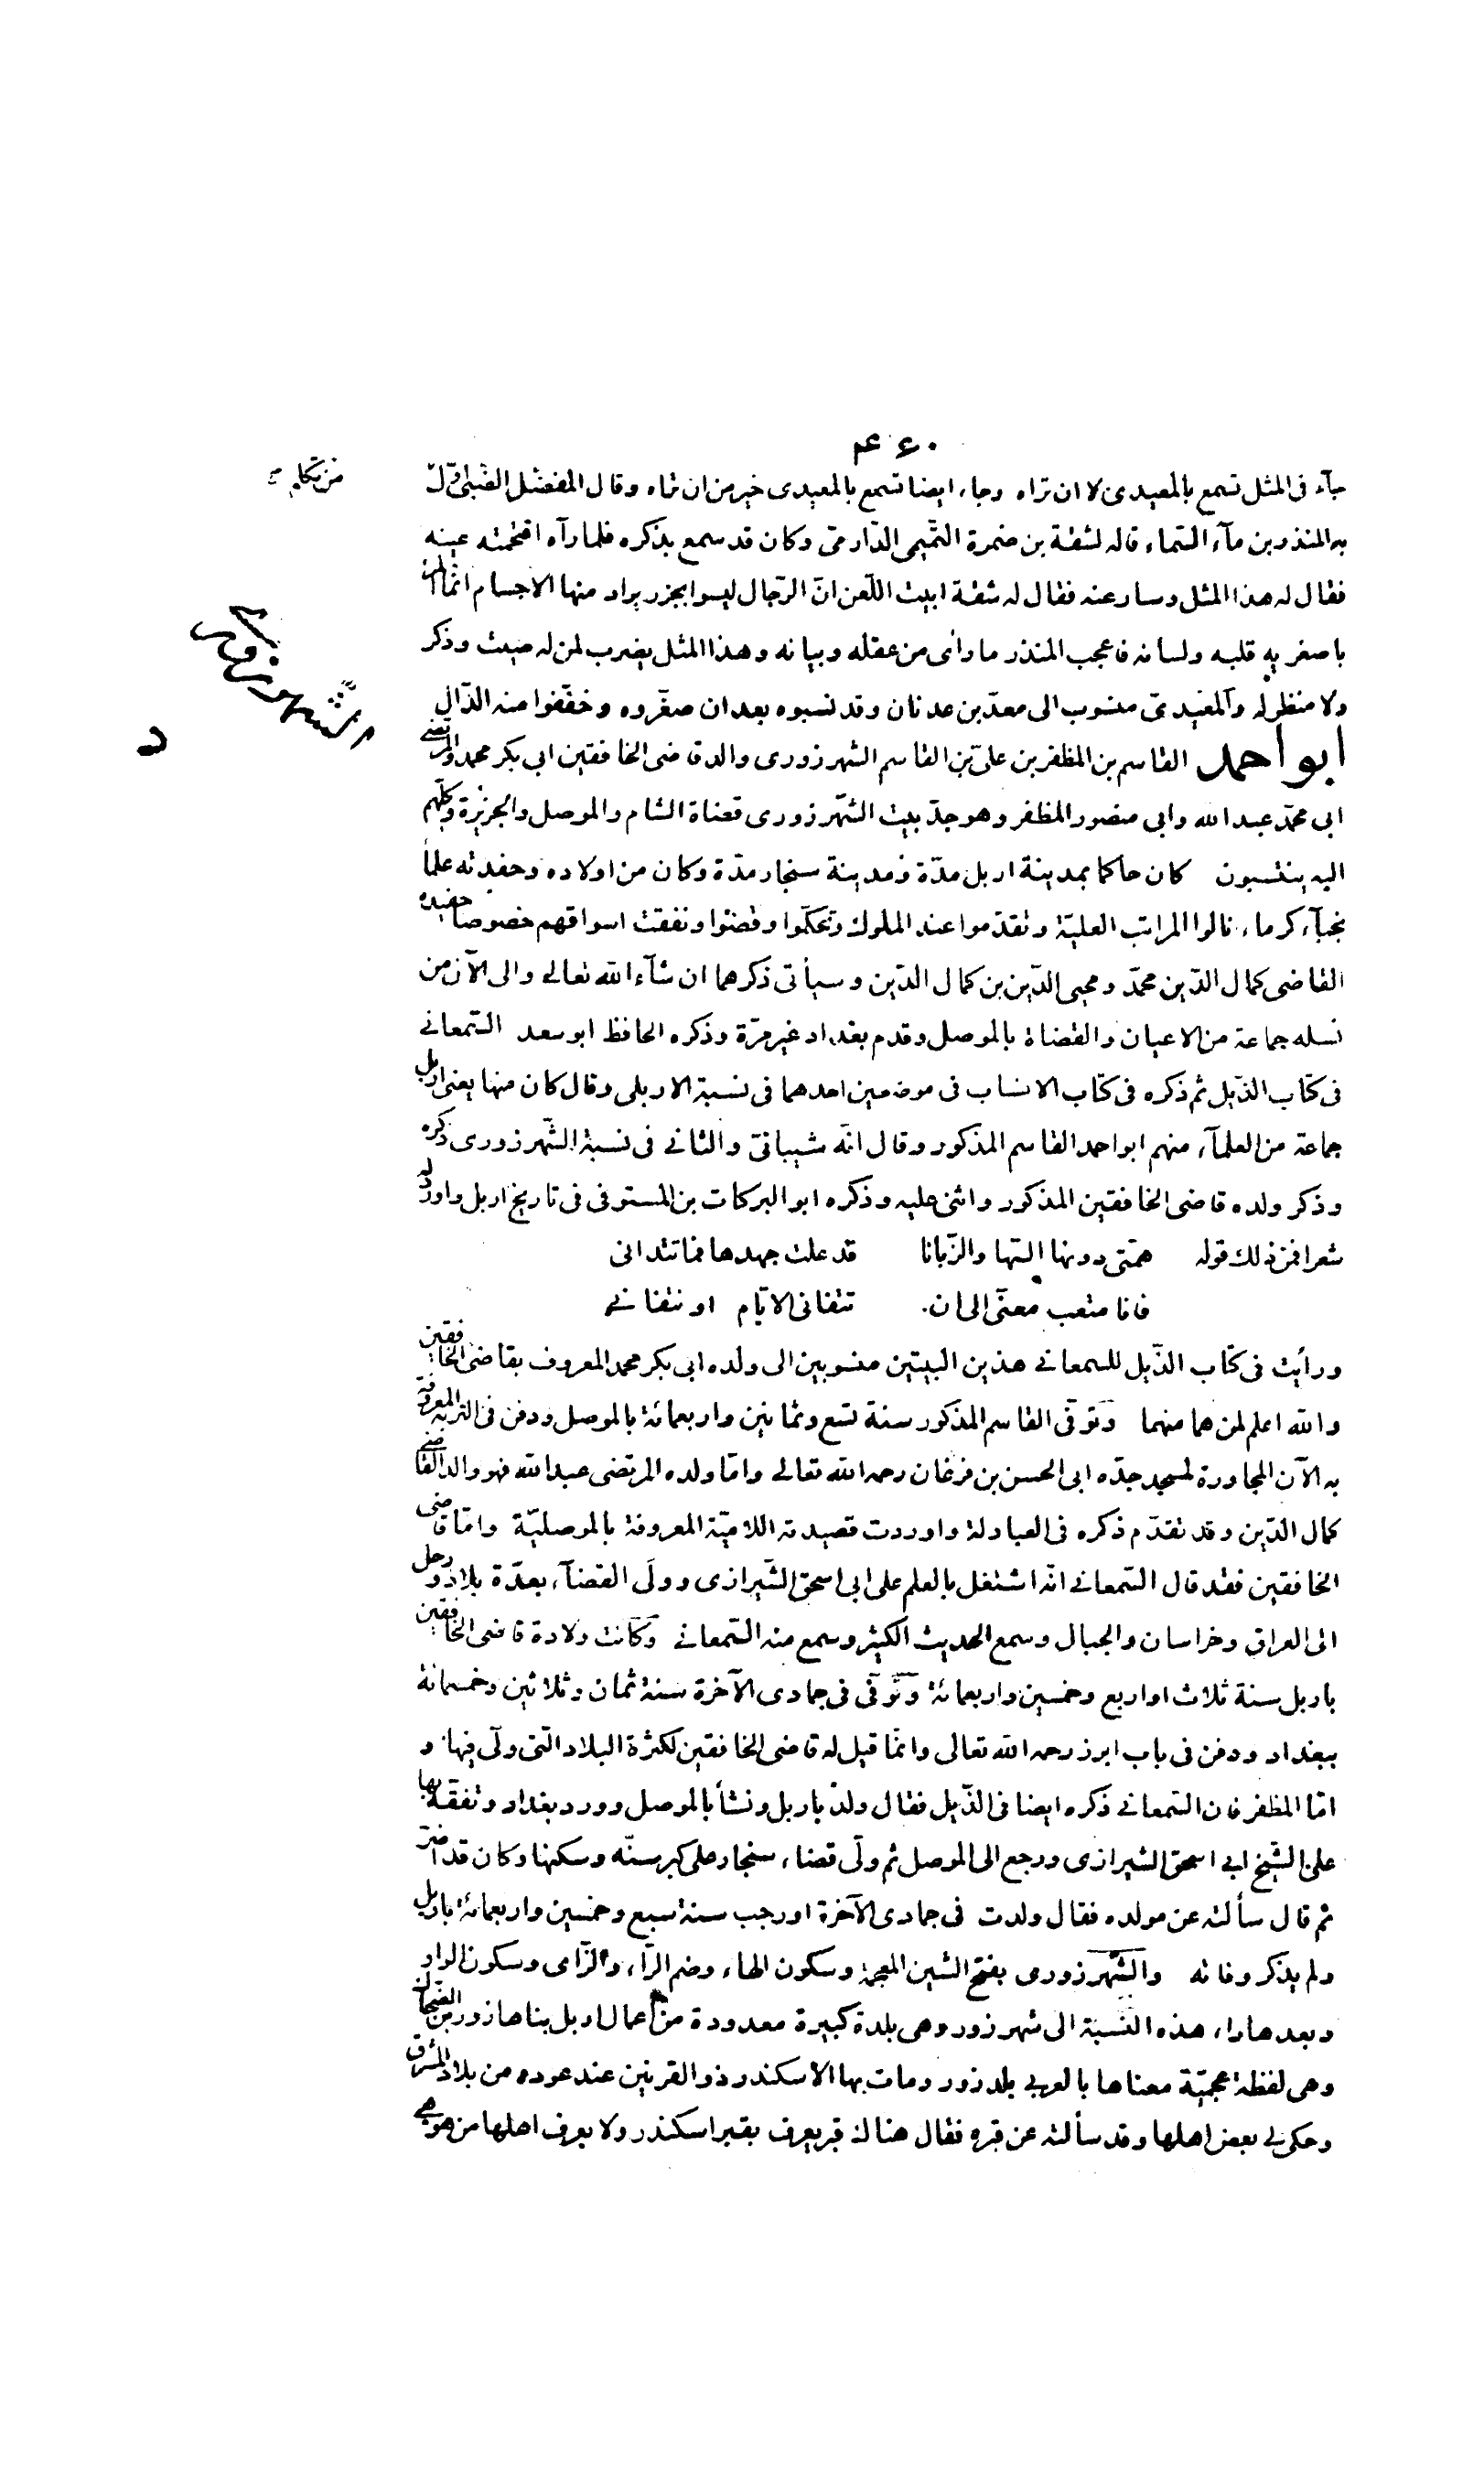 ٤٤٠
جآء فى المثل تسمع بالمعيدى لا ان تراه وجاء ايضا تسمع بالمعيدى خير من ان تراه وقال المفضل الضبى اوّل
من تكلم
به المنذر بن مآء السّماء قاله لشقة بن ضمرة التّميمى الدّارمىّ وكان قد سمع بذكره فلما رآه اقتحمته عينه
فقال له هذا المثل وسار عنه فقال له شقة ابيت اللّعن انّ الرّجال ليسوا بجزر يراد منها الاجسام انّما المرء
باصغريه قلبه ولسانه فاعجب المنذر ما رأى من عقله وبيانه وهذا المثل يضرب لمن له صيت وذكر
ولا منظر له والمعيدىّ منسوب الى معدّ بن عدنان وقد نسبوه بعد ان صغّروه وخفّفوا منه الدّال
الشّهرزورى
ابو احمد القاسم بن المظفر بن علىّ بن القاسم الشهرزورى والد قاضى الخافقين ابى بكر محمد والمرتضى
ابى محمّد عبد الله وابى منصور المظفر وهو جدّ بيت الشّهرزورى قضاة الشام والموصل والجزيرة وكلّهم
اليه ينتسبون كان حاكما بمدينة اربل مدّة ومدينة سنجار مدّة وكان من اولاده وحفدته علمآ
نجبآء كرماء نالوا المراتب العليّة وتقدّموا عند الملوك وتحكّموا وقضوا ونفقت اسواقهم خصوصا حفيده
القاضى كمال الدّين محمّد ومحيى الدّين بن كمال الدّين وسيأتى ذكرهما ان شآء الله تعالى والى الآن من
نسله جماعة من الاعيان والقضاة بالموصل وقدم بغداد غير مرّة وذكره الحافظ ابو سعد السّمعانى
فى كتاب الذّيل ثم ذكره فى كتاب الانساب فى موضعين احدهما فى نسبة الاربلى وقال كان منها يعنى اربل
جماعة من العلمآء منهم ابو احمد القاسم المذكور وقال انّه شيبانىّ والثانى فى نسبة الشّهرزورى ذكره
وذكر ولده قاضى الخافقين المذكور واثنى عليه وذكره ابو البركات بن المستوفى فى تاريخ اربل واورد له
شعرا فمن ذلك قوله همّتى دونها السّها والزّبانا قد علت جهدها فما تتدانى
فانا متعب معنّى الى ان تتفانى الايّام او نتفانى
ورأيت فى كتاب الذّيل للسمعانى هذين البيتين منسوبين الى ولده ابى بكر محمد المعروف بقاضى الخافقين
والله اعلم لمن هما منهما وتوفّى القاسم المذكور سنة تسع وثمانين واربعمائة بالموصل ودفن فى التربة المعروفة
به الآن المجاورة لمسجد جدّه ابى الحسن بن فرغان رحمه الله تعالى وامّا ولده المرتضى عبد الله فهو والد القاضى
كمال الدّين وقد تقدّم ذكره فى العبادلة واوردت قصيدته اللاميّة المعروفة بالموصليّة وامّا قاضى
الخافقين فقد قال السّمعانى انّه اشتغل بالعلم على ابى اسحق الشّيرازى وولّى القضآء بعدّة بلاد ورحل
الى العراق وخراسان والجبال وسمع الحديث الكثير وسمع منه السّمعانى وكانت ولادة قاضى الخافقين
باربل سنة ثلاث او اربع وخمسين واربعمائة وتوفّى فى جمادى الآخرة سنة ثمان وثلاثين وخمسمائة
ببغداد ودفن فى باب ابرز رحمه الله تعالى وانّما قيل له قاضى الخافقين لكثرة البلاد الّتى ولّى فيها و
امّا المظفر فان السّمعانى ذكره ايضا فى الذّيل فقال ولد باربل ونشأ بالموصل وورد بغداد وتفقّه بها
على الشّيخ ابى اسحق الشيرازى ورجع الى الموصل ثم ولّى قضاء سنجار على كبر سنّه وسكنها وكان قد اضرّ
ثم قال سألته عن مولده فقال ولدت فى جمادى الآخرة او رجب سنة سبع وخمسين واربعمائة باربل
ولم يذكر وفاته والشّهرزورى بفتح الشين المعجمة وسكون الهاء وضم الرّاء والزّاى وسكون الواو
وبعدها راء هذه النّسبة الى شهرزور وهى بلدة كبيرة معدودة من اعمال اربل بناها زور بن الضّحاك
وهى لفظة عجميّة معناها بالعربى بلد زور ومات بها الاسكندر ذو القرنين عند عوده من بلاد المشرق
وحكى لى بعض اهلها وقد سألته عن قبره فقال هناك قبر يعرف بقبر اسكندر ولا يعرف اهلها من هو